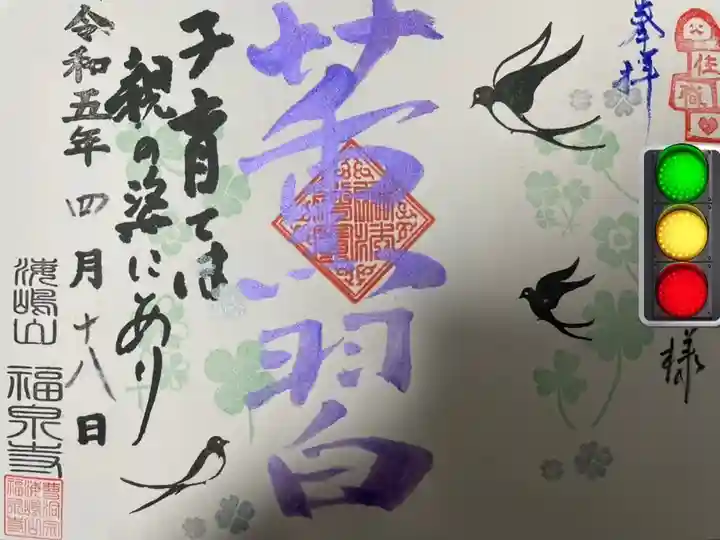 奉拝
住職
様
薫習
子育ては
親の姿にあり
令和五年四月十八日
海嶋山 福泉寺